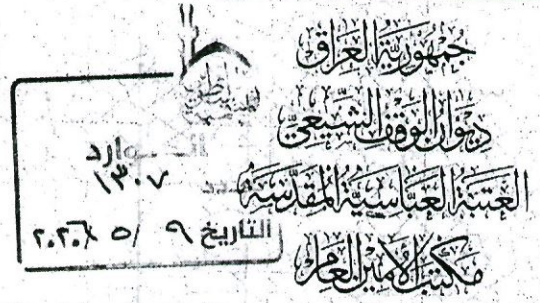 جُمْهُورِيَّةُ العِرَاقِ
دِيوَانُ الوَقْفِ الشِّيعِيِّ
العَتَبَةُ العَبَّاسِيَّةُ المُقَدَّسَةُ
مَكْتَبُ الأَمِينِ العَامِّ
الـــوارد
١٣٠٧
التاريخ ٩ / ٥ / ٢٠٢٦